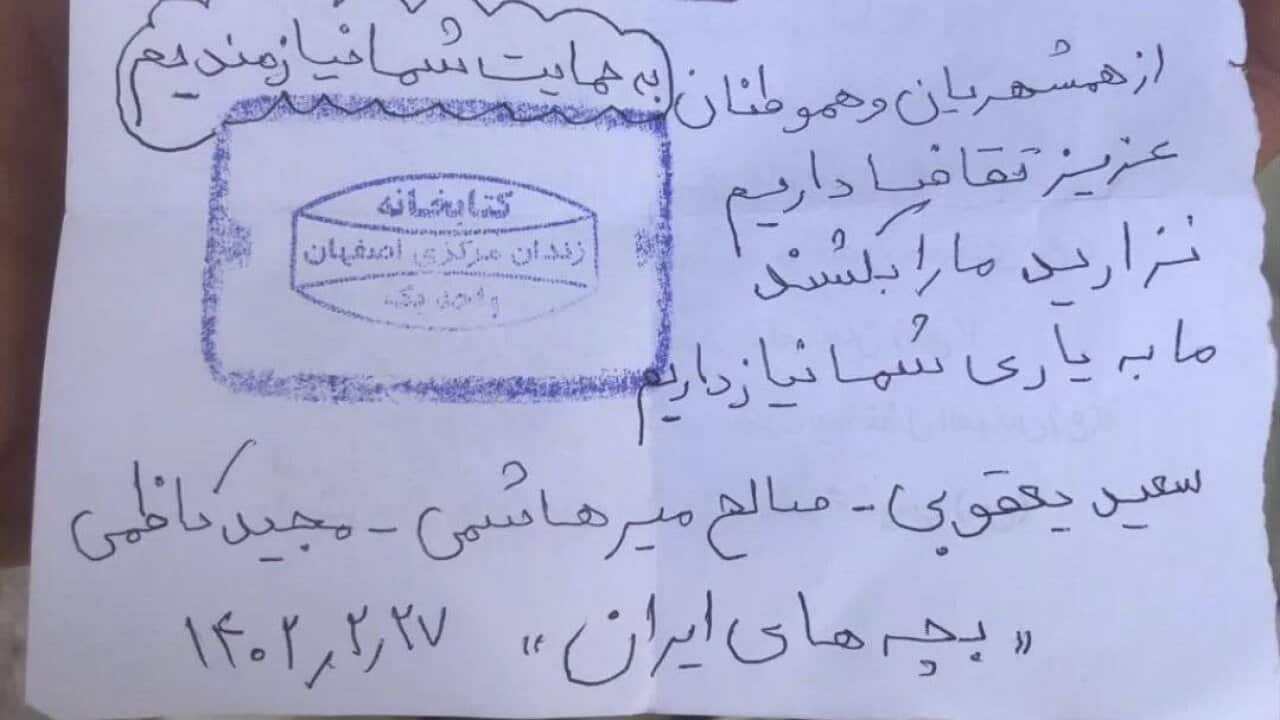 به حمایت شما نیازمندیم
از همشهریان و هموطنان
عزیز تقاضا داریم
نزارید ما را بکشند
ما به یاری شما نیاز داریم
کتابخانه
زندان مرکزی اصفهان
واحد یک
سعید یعقوبی - صالح میرهاشمی - مجید کاظمی
«بچه های ایران» ۱۴۰۲٫۲٫۲۷